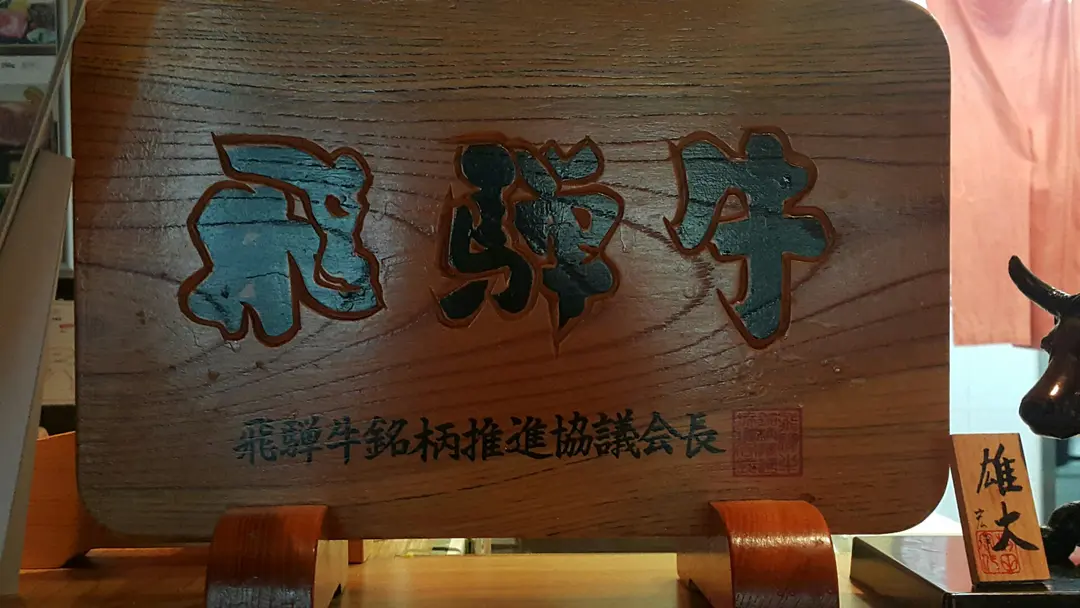 飛騨牛
飛騨牛銘柄推進協議会長
雄大